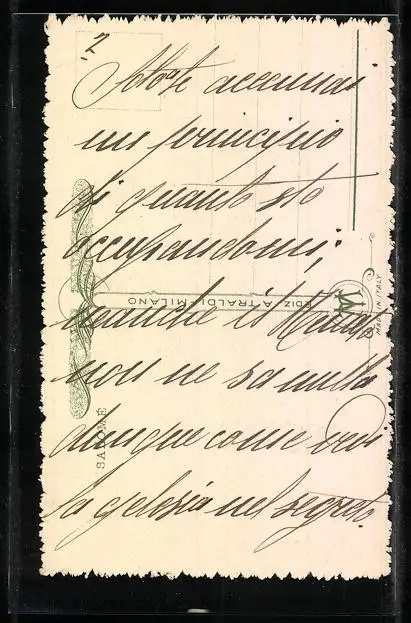 2
accennai
un principio
di quanto sto
occupandomi;
non ne sa nulla
dunque come vedi
la gelosia nel segreto
EDIZ. A. TRALDI - MILANO
MADE IN ITALY
SALOMÉ